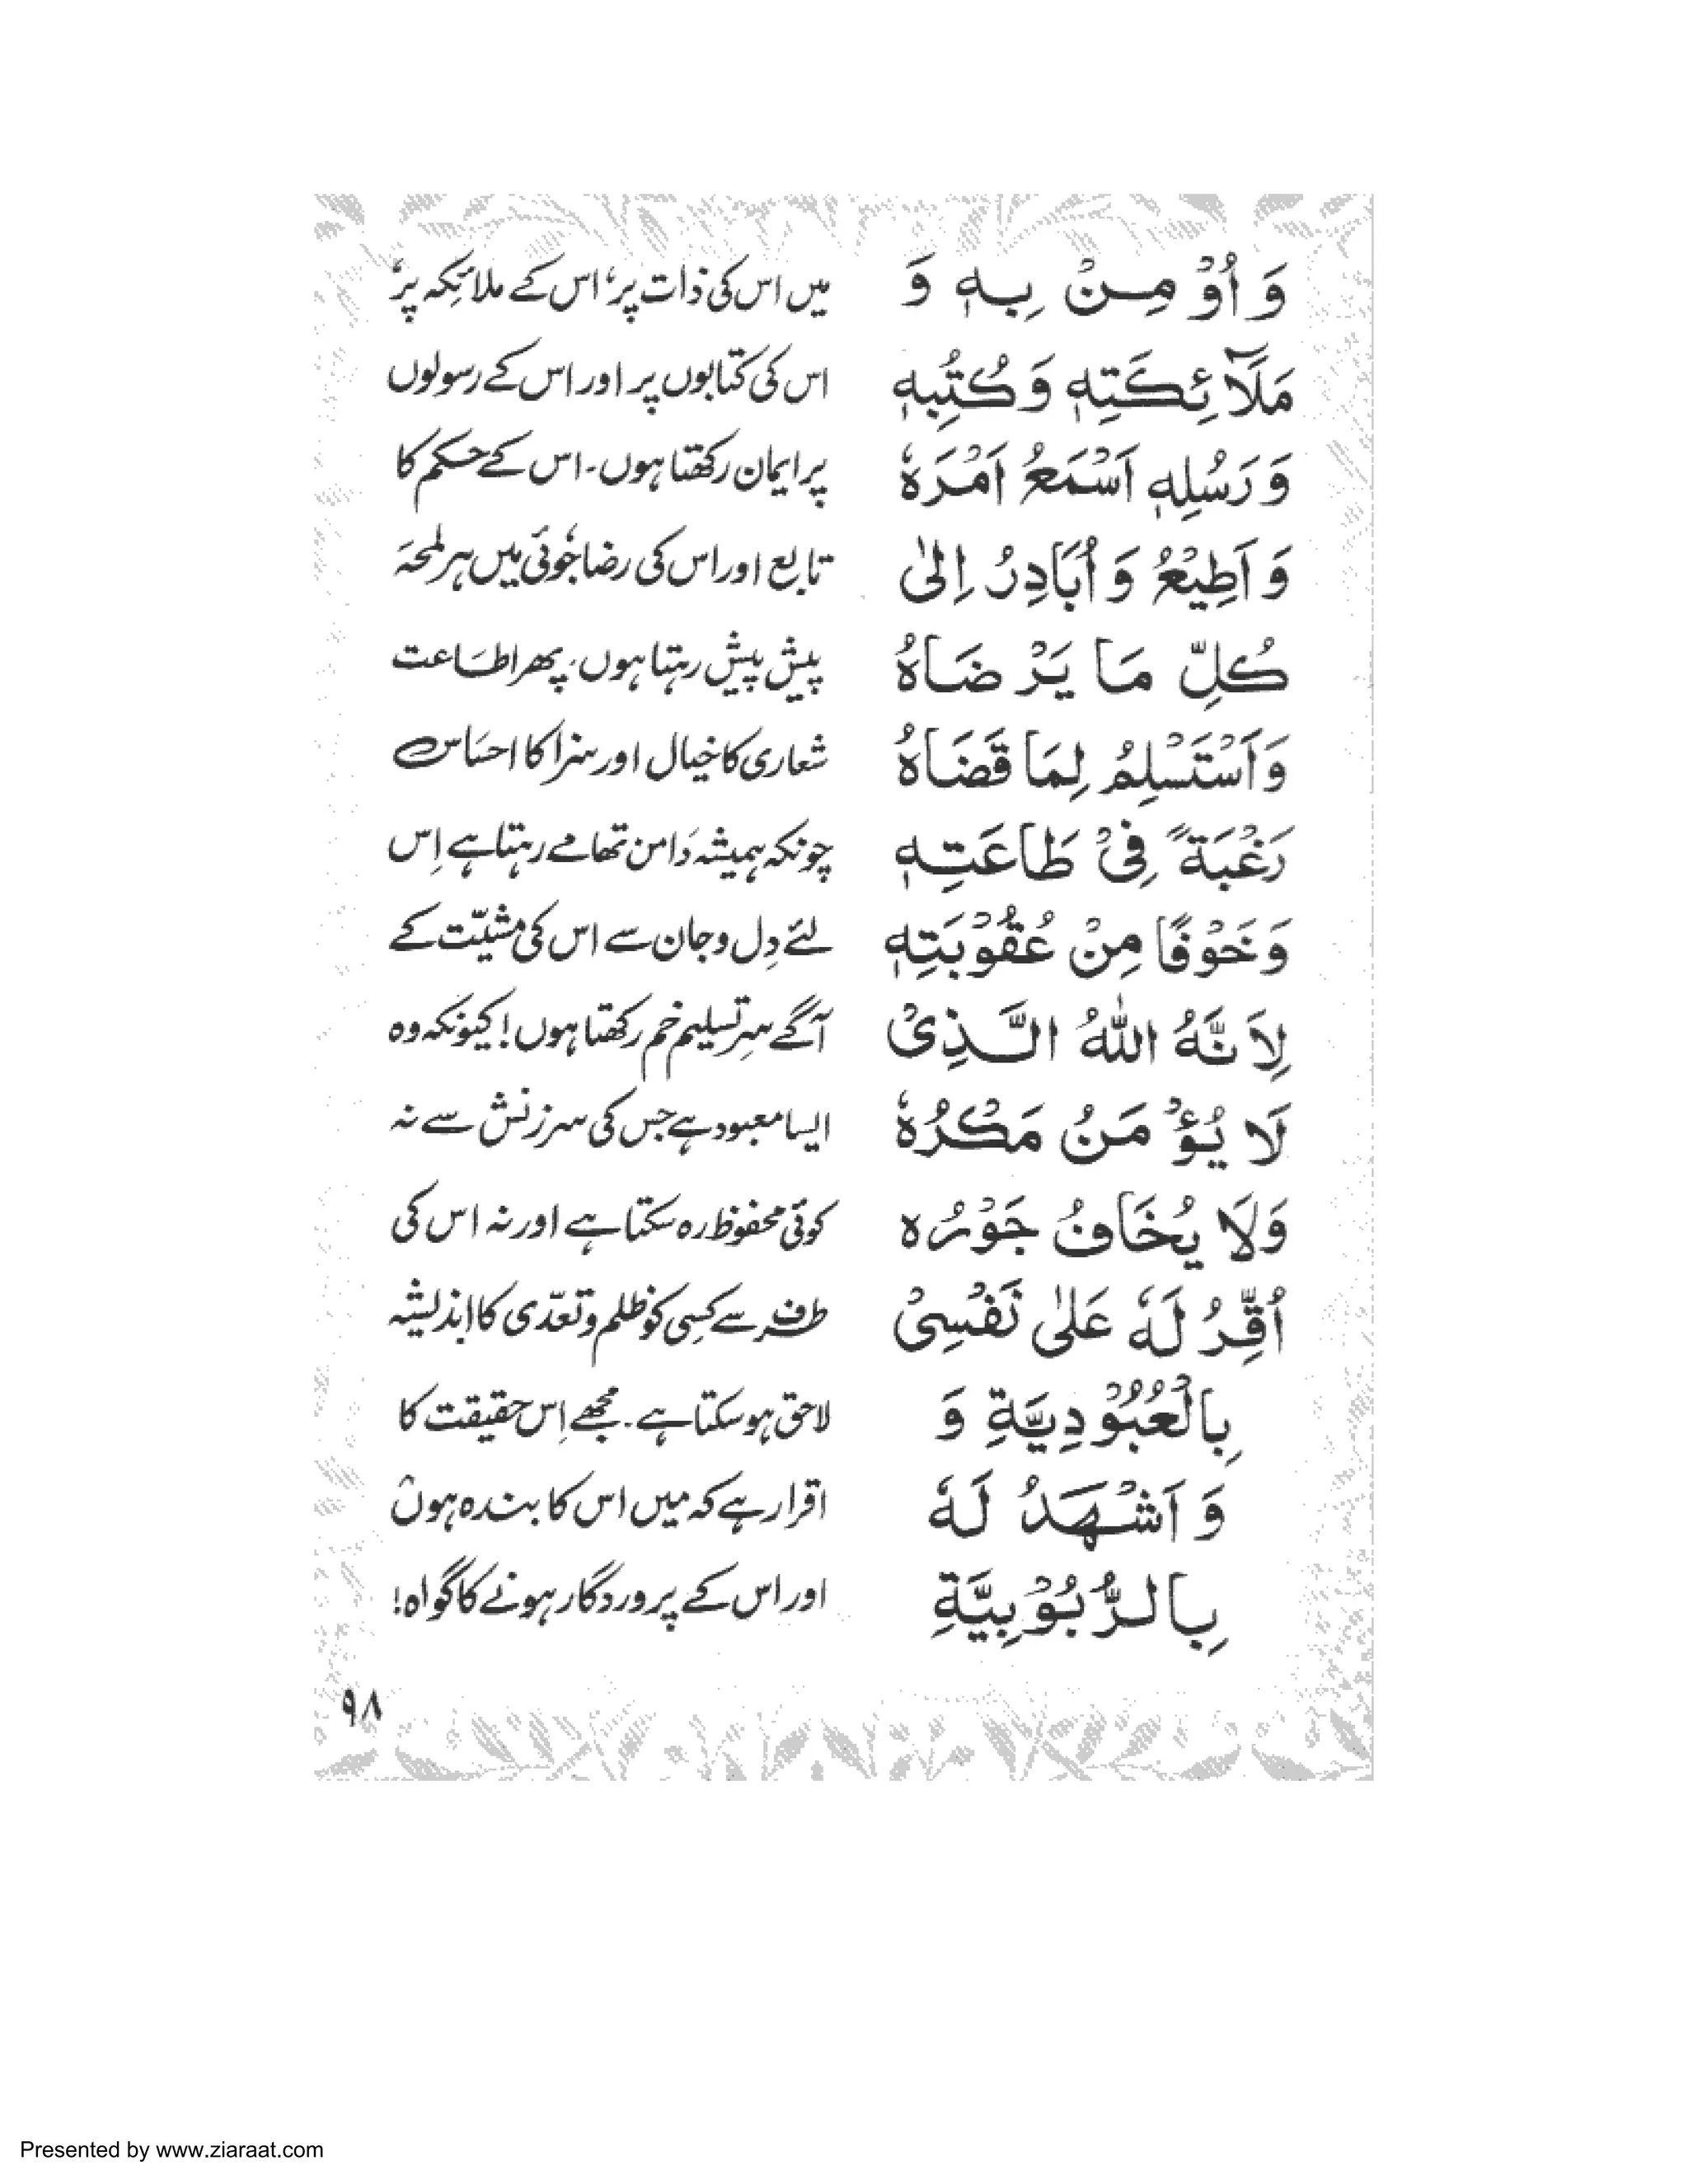 وَ اُوْ مِنْ بِهٖ وَ
مَلَآئِكَتِهٖ وَكُتُبِهٖ
وَ رَسُلِهٖ اَسْمَعُ اَمْرَهٗ
وَ اَطِيْعُ وَ اُبَادِرُ اِلىٰ
كُلِّ مَا يَرْ ضَاهُ
وَاَسْتَسْلِمُ لِمَا قَضَاهُ
رَغْبَةً فِىْ طَاعَتِهٖ
وَ خَوْفًا مِنْ عُقُوْبَتِهٖ
لِاَ نَّهُ اللّٰهُ الَّذِىْ
لَا يُؤْ مَنُ مَكْرُهٗ
وَلَا يُخَافُ جَوْرُه
اُقِّرُ لَهٗ عَلىٰ نَفْسِىْ
بِالْعُبُوْدِيَّةِ وَ
وَ اَشْهَدُ لَهٗ
بِالرُّبُوْبِيَّةِ
میں اس کی ذات پر، اس کے ملائکہ پر،
اس کی کتابوں پر اور اس کے رسولوں
پر ایمان رکھتا ہوں۔ اس کے حکم کا
تابع اور اس کی رضا جُوئی میں ہر لمحہ
پیش پیش رہتا ہوں، پھر اطاعت
شعاری کا خیال اور سزا کا احساس
چونکہ ہمیشہ دَامن تھامے رہتا ہے اِس
لئے دِل و جان سے اس کی مشیّت کے
آگے سرِ تسلیم خم رکھتا ہوں! کیونکہ وہ
ایسا معبود ہے جس کی سرزنش سے نہ
کوئی محفوظ رہ سکتا ہے اور نہ اس کی
طرف سے کسِی کو ظلم و تعدّی کا اندیشہ
لاحق ہو سکتا ہے۔ مجھے اِس حقیقت کا
اقرار ہے کہ میں اس کا بندہ ہوں
اور اس کے پروردگار ہونے کا گواہ!
۹۸
Presented by www.ziaraat.com